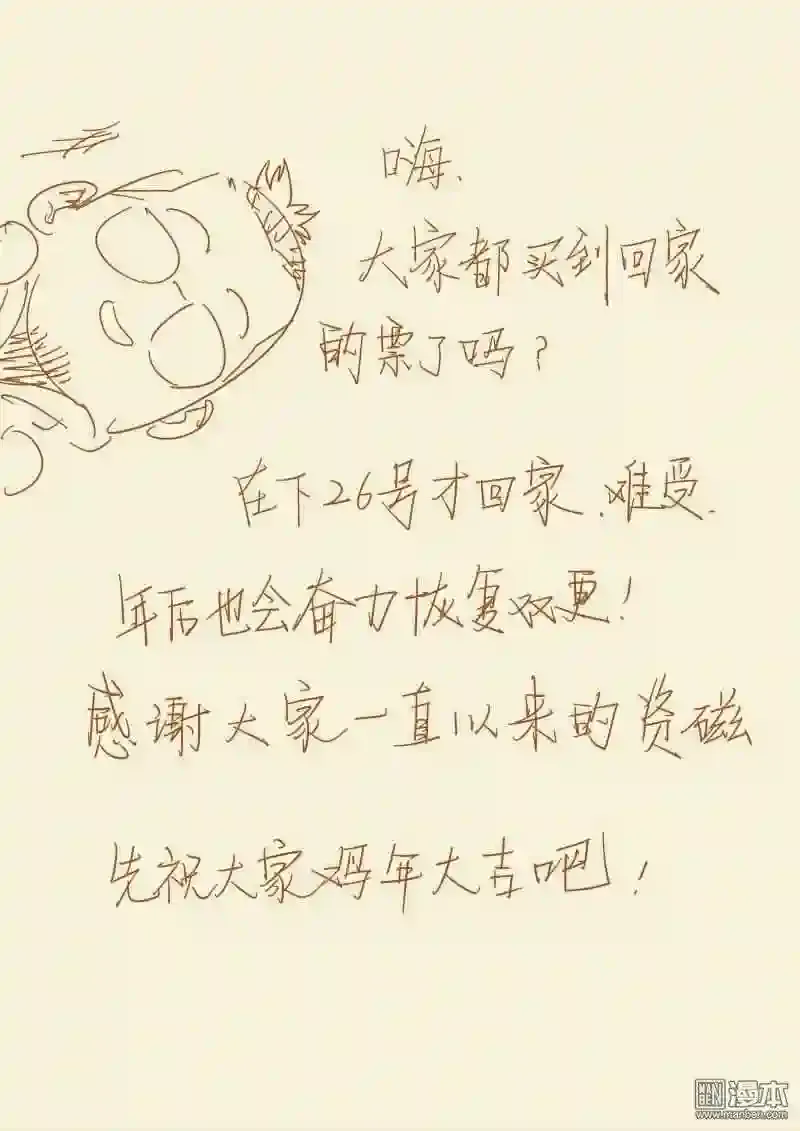 嗨.
大家都买到回家
的票了吗?
在下26号才回家.难受.
年后也会奋力恢复双更!
感谢大家一直以来的资磁
先祝大家鸡年大吉吧!
MAN BEN 漫本
www.manben.com